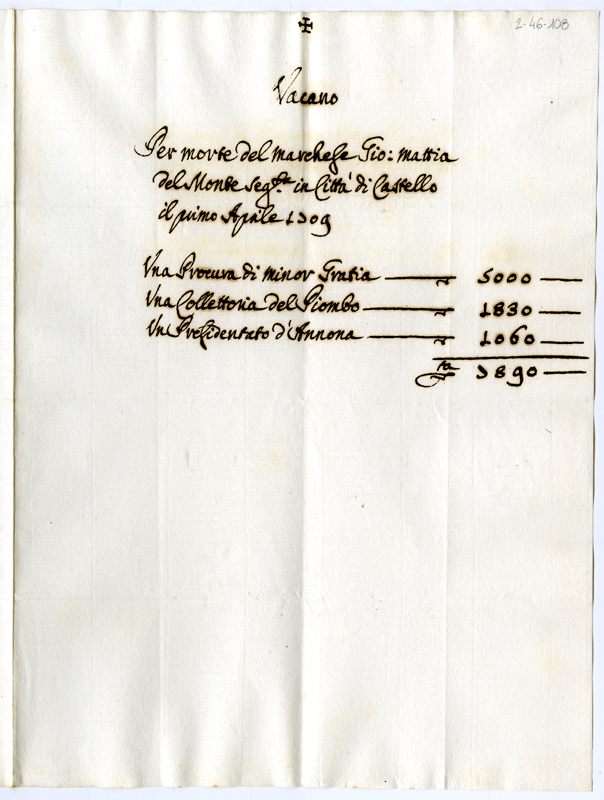 ✠
2-46-108
Vacano
Per morte del Marchese Gio: Mattia
del Monte seg.ta in Città di Castello
il primo Aprile 1709
Una Procura di minor Gratia — 5000 —
Una Collettoria del Piombo — 1830 —
Un Presidentato d'Annona — 1060 —
7890 —